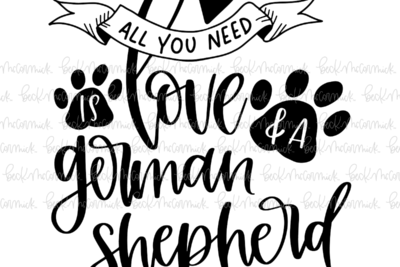 ALL YOU NEED
IS love &A
german
shepherd